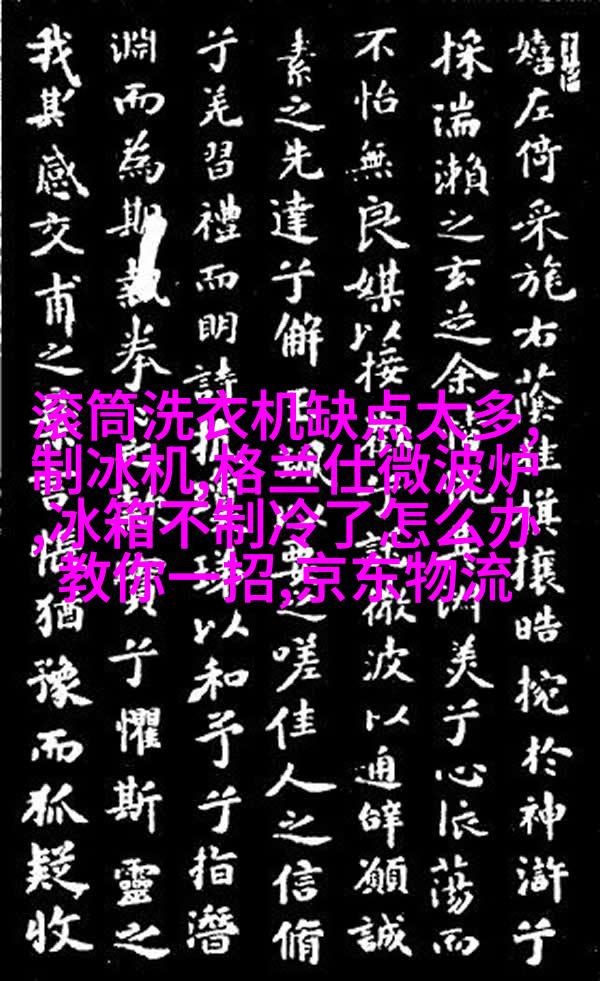 嬉左倚采旄右蔭桂旗攘皓捥於神滸兮
採湍瀨之玄芝余情悅淑美兮心振蕩而
不怡無良媒以接兮託微波以通辭願誠
素之先達兮解玉以要之嗟佳人之信脩
兮羌習禮而明詩以和予兮指潛
淵而為期執拳實兮懼斯靈之
我欺感交甫之言悵猶豫而狐疑收
滚筒洗衣机缺点太多,
制冰机,格兰仕微波炉
,冰箱不制冷了怎么办
教你一招,京东物流